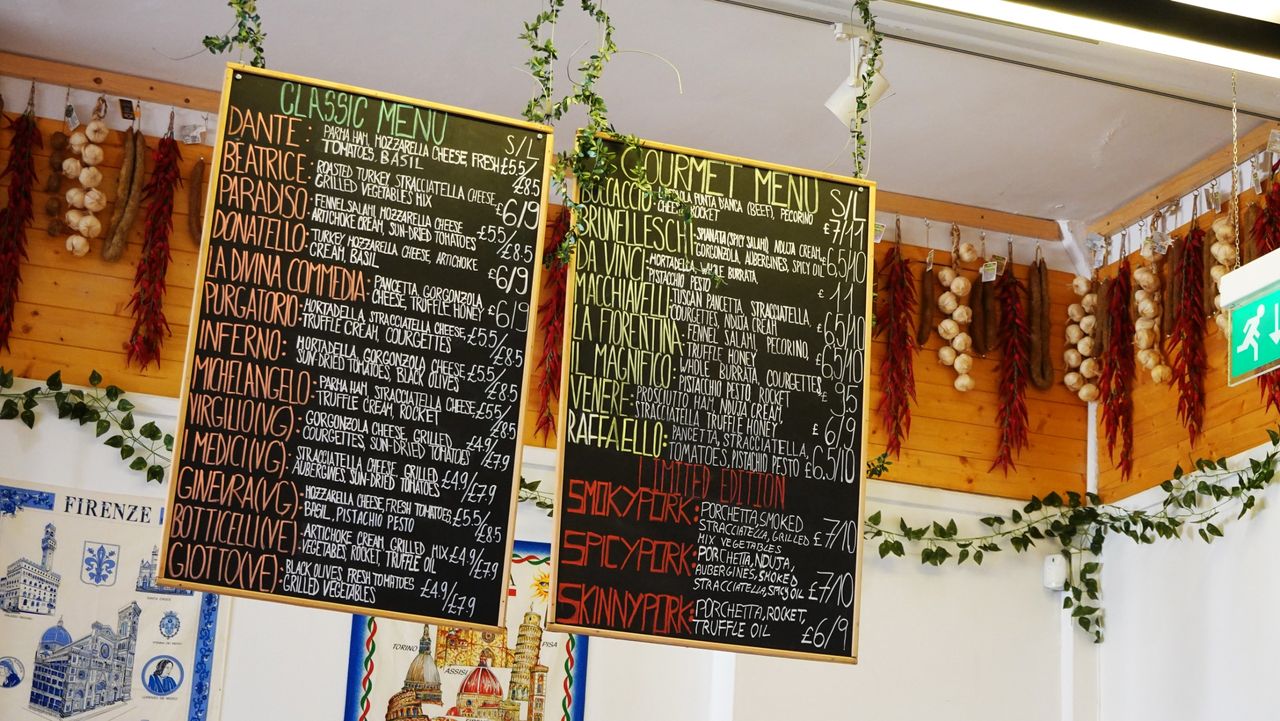 CLASSIC MENU
S/L
DANTE: PARMA HAM, MOZZARELLA CHEESE, FRESH £5.5/
TOMATOES, BASIL £8.5
BEATRICE: ROASTED TURKEY, STRACCIATELLA CHEESE,
GRILLED VEGETABLES MIX £6/9
PARADISO: FENNEL SALAMI, MOZZARELLA CHEESE
ARTICHOKE CREAM, SUN-DRIED TOMATOES £5.5/£8.5
DONATELLO: TURKEY MOZZARELLA CHEESE, ARTICHOKE
CREAM, BASIL £6/9
LA DIVINA COMMEDIA: PANCETTA, GORGONZOLA
CHEESE, TRUFFLE HONEY £6/9
PURGATORIO: MORTADELLA, STRACCIATELLA CHEESE, £5.5/
TRUFFLE CREAM, COURGETTES £8.5
INFERNO: MORTADELLA, GORGONZOLA CHEESE,
SUN-DRIED TOMATOES, BLACK OLIVES £5.5/£8.5
MICHELANGELO: PARMA HAM, STRACCIATELLA CHEESE, £5.5/
TRUFFLE CREAM, ROCKET £8.5
VIRGILIO(VG): GORGONZOLA CHEESE, GRILLED
COURGETTES, SUN-DRIED TOMATOES £4.9/£7.9
I MEDICI(VG): STRACCIATELLA CHEESE, GRILLED
AUBERGINES, SUN DRIED TOMATOES £4.9/£7.9
GINEVRA(VG): MOZZARELLA CHEESE, FRESH TOMATOES,
BASIL, PISTACHIO PESTO £5.5/£8.5
BOTTICELLI(VE): ARTICHOKE CREAM, GRILLED MIX £4.9/
VEGETABES, ROCKET, TRUFFLE OIL £7.9
GIOTTO(VE): BLACK OLIVES, FRESH TOMATOES
GRILLED VEGETABLES £4.9/£7.9
GOURMET MENU
S/L
BOCCACCIO: PUNTA D'ANCA (BEEF), PECORINO
CHEESE, ROCKET £7/11
BRUNELLESCHI: SPIANATA (SPICY SALAMI) NDUJA CREAM,
GORGONZOLA, AUBERGINES, SPICY OIL £6.5/10
DA VINCI: MORTADELLA, WHOLE BURRATA,
PISTACHIO PESTO £11
MACCHIAVELLI: TUSCAN PANCETTA, STRACCIATELLA,
COURGETTES, NDUJA CREAM £6.5/10
LA FIORENTINA: FENNEL SALAMI, PECORINO,
TRUFFLE HONEY £6.5/10
IL MAGNIFICO: WHOLE BURRATA, COURGETTES,
PISTACHIO PESTO ROCKET £9.5
VENERE: PROSCIUTTO HAM, NDUJA CREAM,
STRACCIATELLA TRUFFLE HONEY £6/9
RAFFAELLO: PANCETTA, STRACCIATELLA,
TOMATOES, PISTACHIO PESTO £6.5/10
LIMITED EDITION
SMOKYPORK: PORCHETTA, SMOKED
STRACCIATELLA, GRILLED
MIX VEGETABLES £7/10
SPICYPORK: PORCHETTA, NDUJA,
AUBERGINES, SMOKED
STRACCIATELLA, SPICY OIL £7/10
SKINNYPORK: PORCHETTA, ROCKET,
TRUFFLE OIL £6/9
FIRENZE
TORINO
ASSISI
PISA